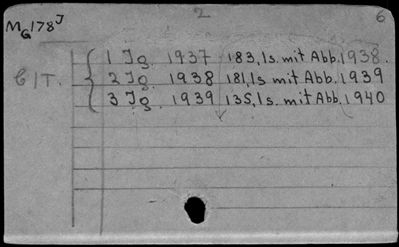 2 6
M_G 178^J
1 Jg. 1937 183, 1s. mit Abb. 1938.
C/T. 2 Jg. 1938 181, 1s. mit Abb. 1939
3 Jg. 1939 135, 1s. mit Abb. 1940